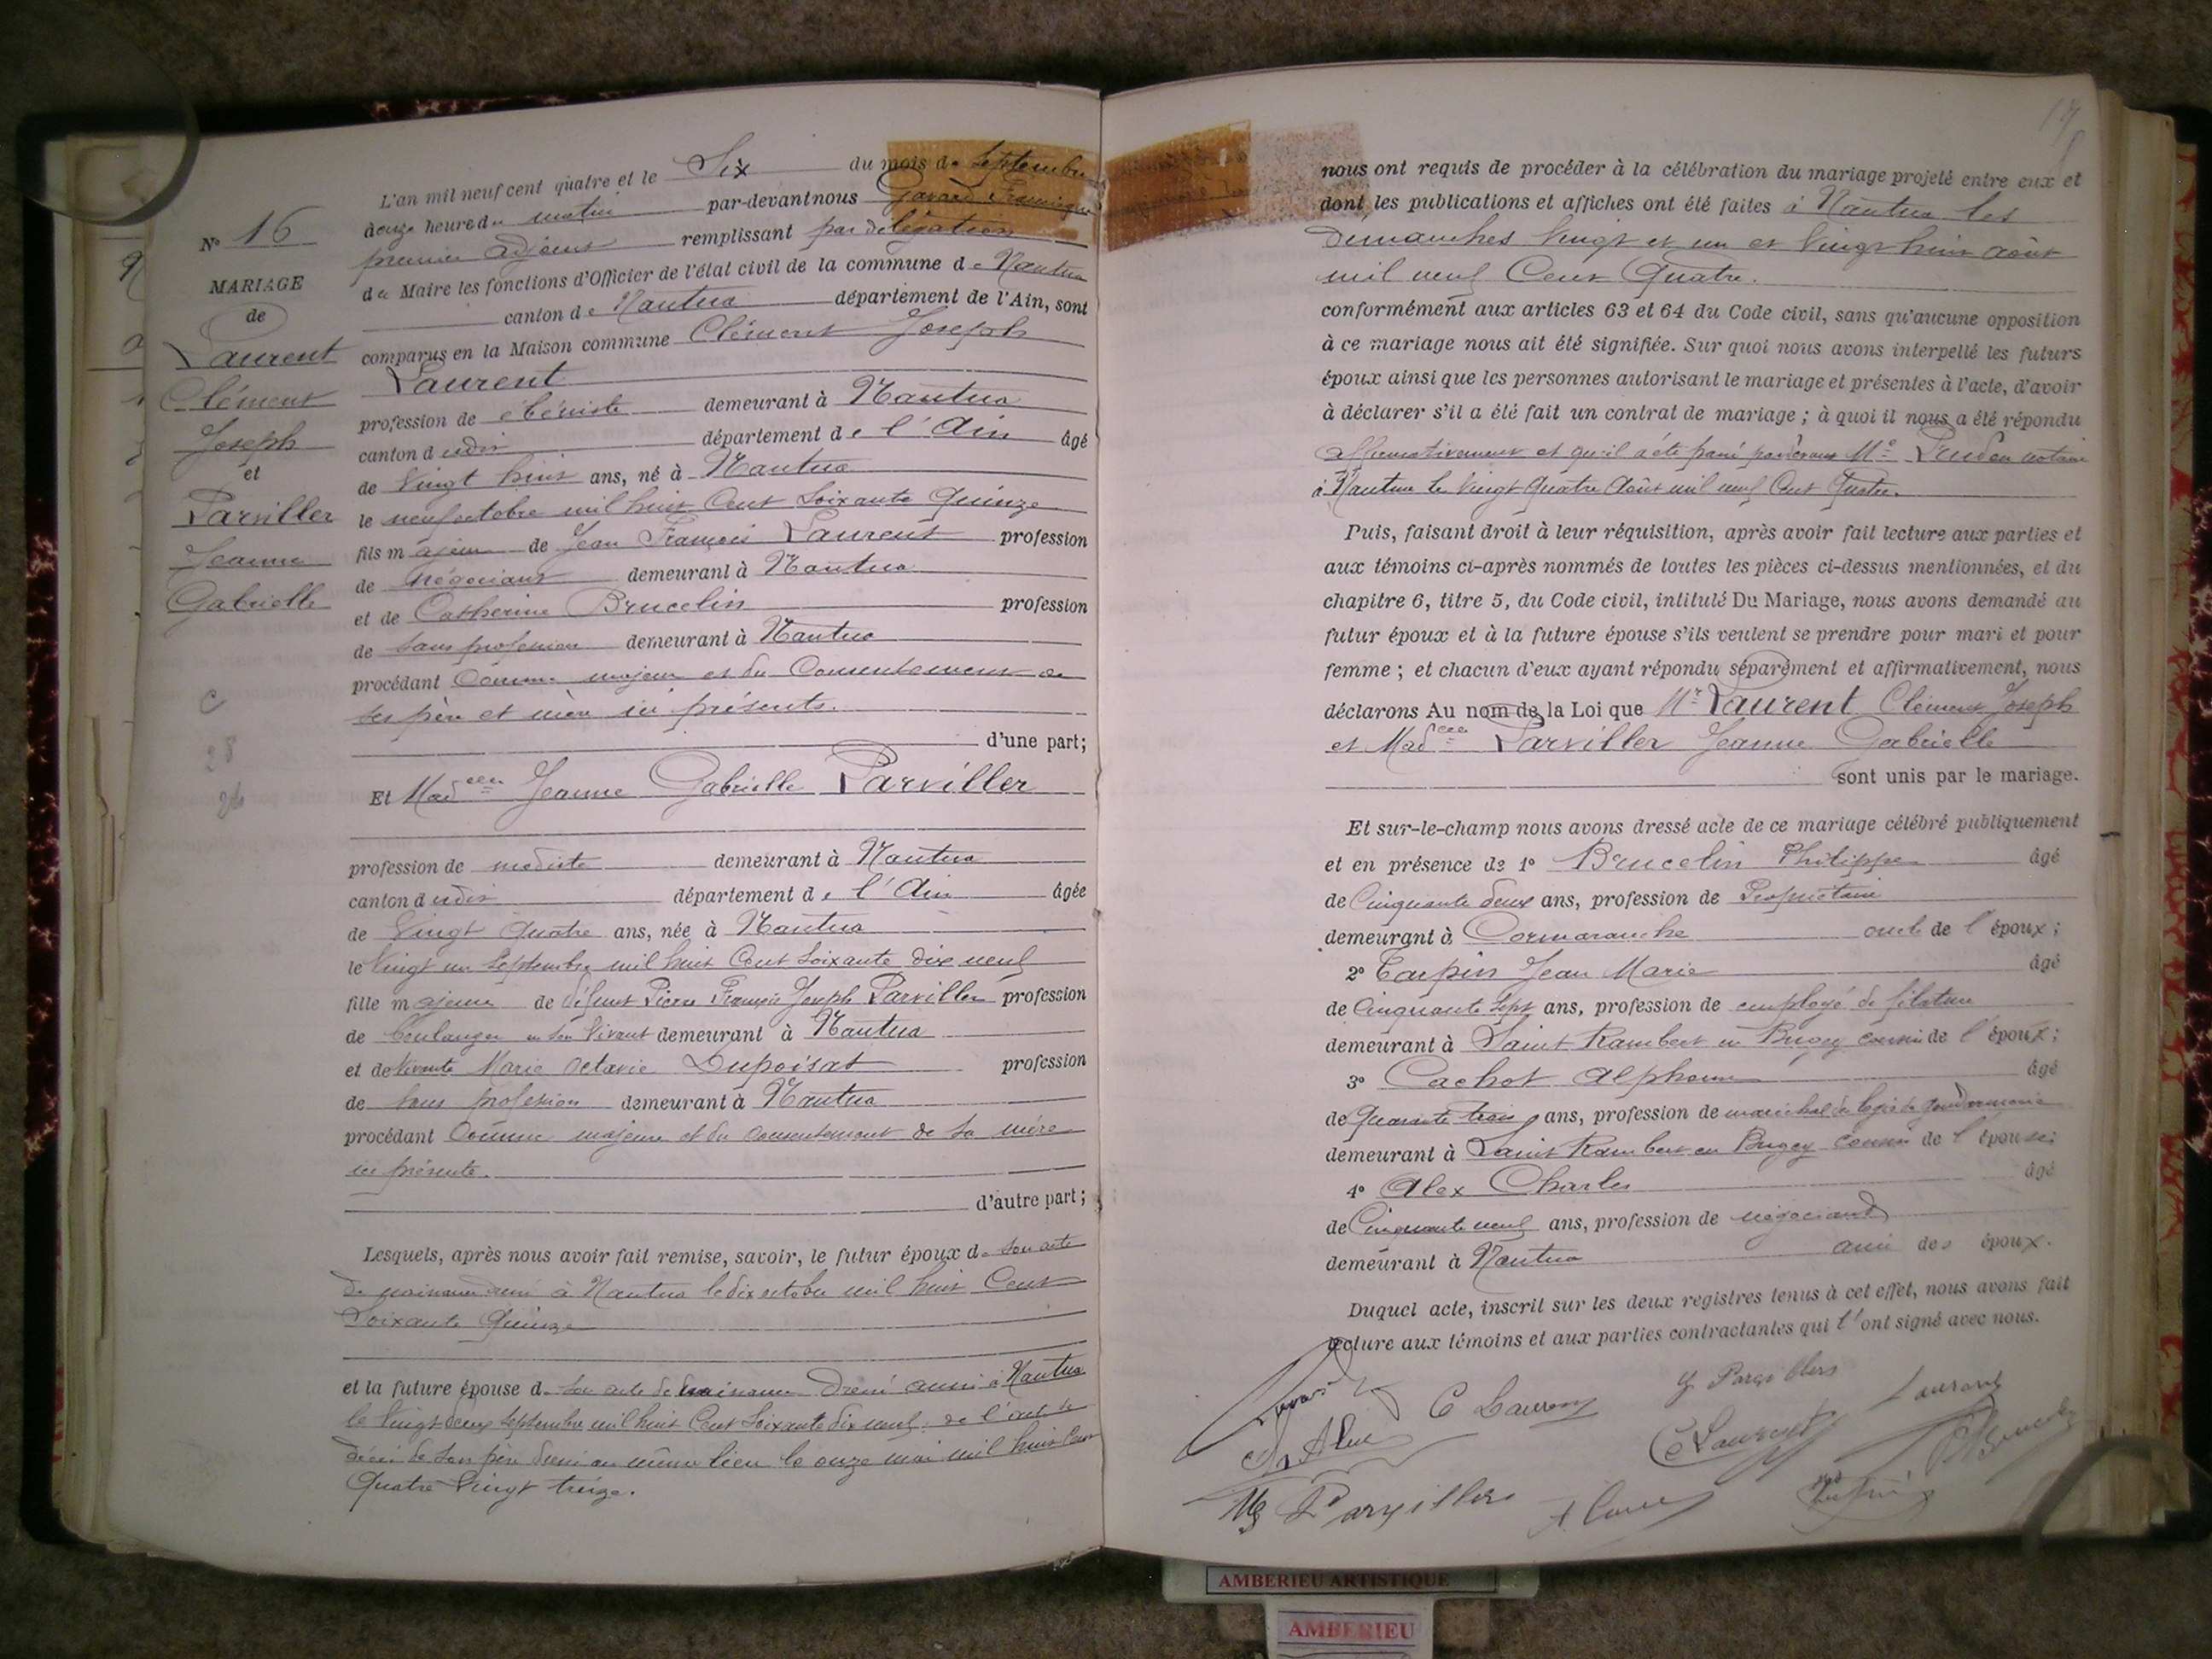 L'an mil neuf cent quatre et le Six du mois de Septembre
N° 16
MARIAGE
de
Laurent
Clément
Joseph
et
Parviller
Jeanne
Gabrielle
douze heure du matin par-devant nous Gavard
premier adjoint remplissant par délégation
du Maire les fonctions d'Officier de l'état civil de la commune de Nantua
canton de Nantua département de l'Ain, sont
comparus en la Maison commune Clément Joseph
Laurent
profession de ébéniste demeurant à Nantua
canton dudit département de l'Ain âgé
de vingt huit ans, né à Nantua
le neuf octobre mil huit Cent Soixante Quinze
fils majeur de Jean François Laurent profession
de négociant demeurant à Nantua
et de Catherine Brucelin profession
de sans profession demeurant à Nantua
procédant Comme majeur et du Consentement de
ses père et mère ici présents.
d'une part;
Et Madelle Jeanne Gabrielle Parviller
profession de modiste demeurant à Nantua
canton dudit département de l'Ain âgée
de Vingt quatre ans, née à Nantua
le Vingt un Septembre mil huit Cent Soixante dix neuf
fille majeure de défunt Pierre François Joseph Parviller profession
de boulanger en son vivant demeurant à Nantua
et de vivante Marie Octavie Dupoisat profession
de sans profession demeurant à Nantua
procédant Comme majeure et du consentement de sa mère
ici présente.
d'autre part;
Lesquels, après nous avoir fait remise, savoir, le futur époux de son acte
de naissance dressé à Nantua le dix octobre mil huit Cent
Soixante Quinze
et la future épouse de son acte de naissance Dressé aussi à Nantua
le vingt deux Septembre mil huit Cent Soixante dix neuf, de l'acte de
décès de son père dressé au même lieu le onze mai mil huit Cent
Quatre Vingt treize.
nous ont requis de procéder à la célébration du mariage projeté entre eux et
dont les publications et affiches ont été faites à Nantua les
Dimanches Vingt et un et Vingt huit août
mil neuf Cent Quatre.
conformément aux articles 63 et 64 du Code civil, sans qu'aucune opposition
à ce mariage nous ait été signifiée. Sur quoi nous avons interpellé les futurs
époux ainsi que les personnes autorisant le mariage et présentes à l'acte, d'avoir
à déclarer s'il a été fait un contrat de mariage ; à quoi il nous a été répondu
affirmativement et qu'il a été passé pardevant Me notaire
à Nantua le Vingt Quatre Août mil neuf Cent Quatre.
Puis, faisant droit à leur réquisition, après avoir fait lecture aux parties et
aux témoins ci-après nommés de toutes les pièces ci-dessus mentionnées, et du
chapitre 6, titre 5, du Code civil, intitulé Du Mariage, nous avons demandé au
futur époux et à la future épouse s'ils veulent se prendre pour mari et pour
femme ; et chacun d'eux ayant répondu séparément et affirmativement, nous
déclarons Au nom de la Loi que Mr Laurent Clément Joseph
et Madelle Parviller Jeanne Gabrielle
sont unis par le mariage.
Et sur-le-champ nous avons dressé acte de ce mariage célébré publiquement
et en présence de 1° Brucelin Philippe âgé
de Cinquante deux ans, profession de Propriétaire
demeurant à Cormaranche oncle de l'époux;
2° Tarpin Jean Marie âgé
de Cinquante Sept ans, profession de employé de filature
demeurant à Saint Rambert en Bugey cousin de l'époux;
3° Cachot Alphonse âgé
de Quarante trois ans, profession de maréchal des logis de gendarmerie
demeurant à Saint Rambert en Bugey cousin de l'épouse;
4° Alex Charles âgé
de Cinquante neuf ans, profession de négociant
demeurant à Nantua ami des époux.
Duquel acte, inscrit sur les deux registres tenus à cet effet, nous avons fait
lecture aux témoins et aux parties contractantes qui l'ont signé avec nous.
C Laurent
Laurent
AMBERIEU ARTISTIQUE
AMBERIEU